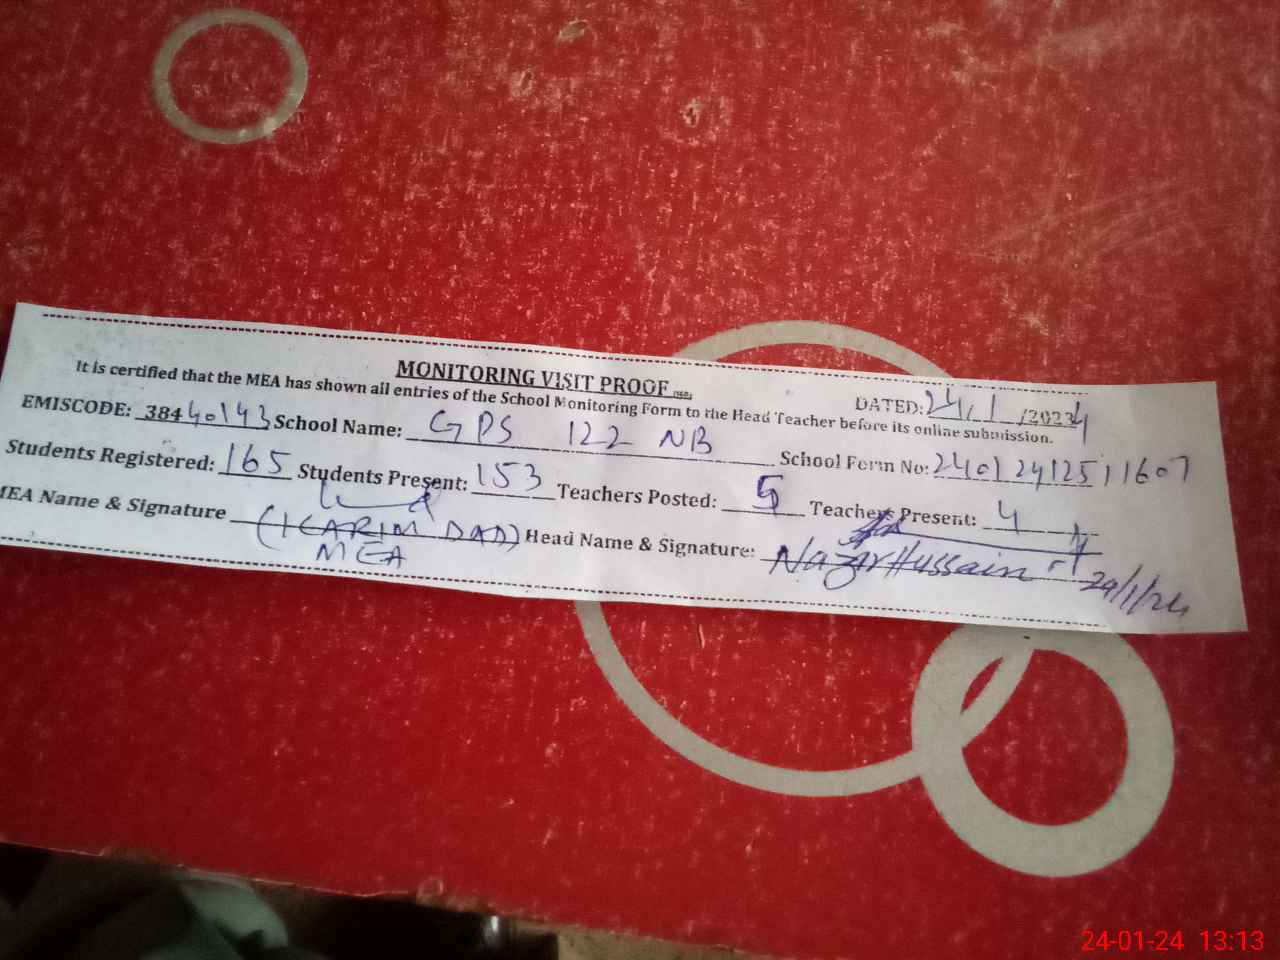 MONITORING VISIT PROOF
DATED: 24/1/2024
It is certified that the MEA has shown all entries of the School Monitoring Form to the Head Teacher before its online submission.
EMISCODE: 38440143 School Name: GPS 122 NB School Form No: 2401241251 1607
Students Registered: 165 Students Present: 153 Teachers Posted: 5 Teachers Present: 4
MEA Name & Signature (KARIM DAD) Head Name & Signature: Nazar Hussain
MEA 24/1/24
24-01-24 13:13